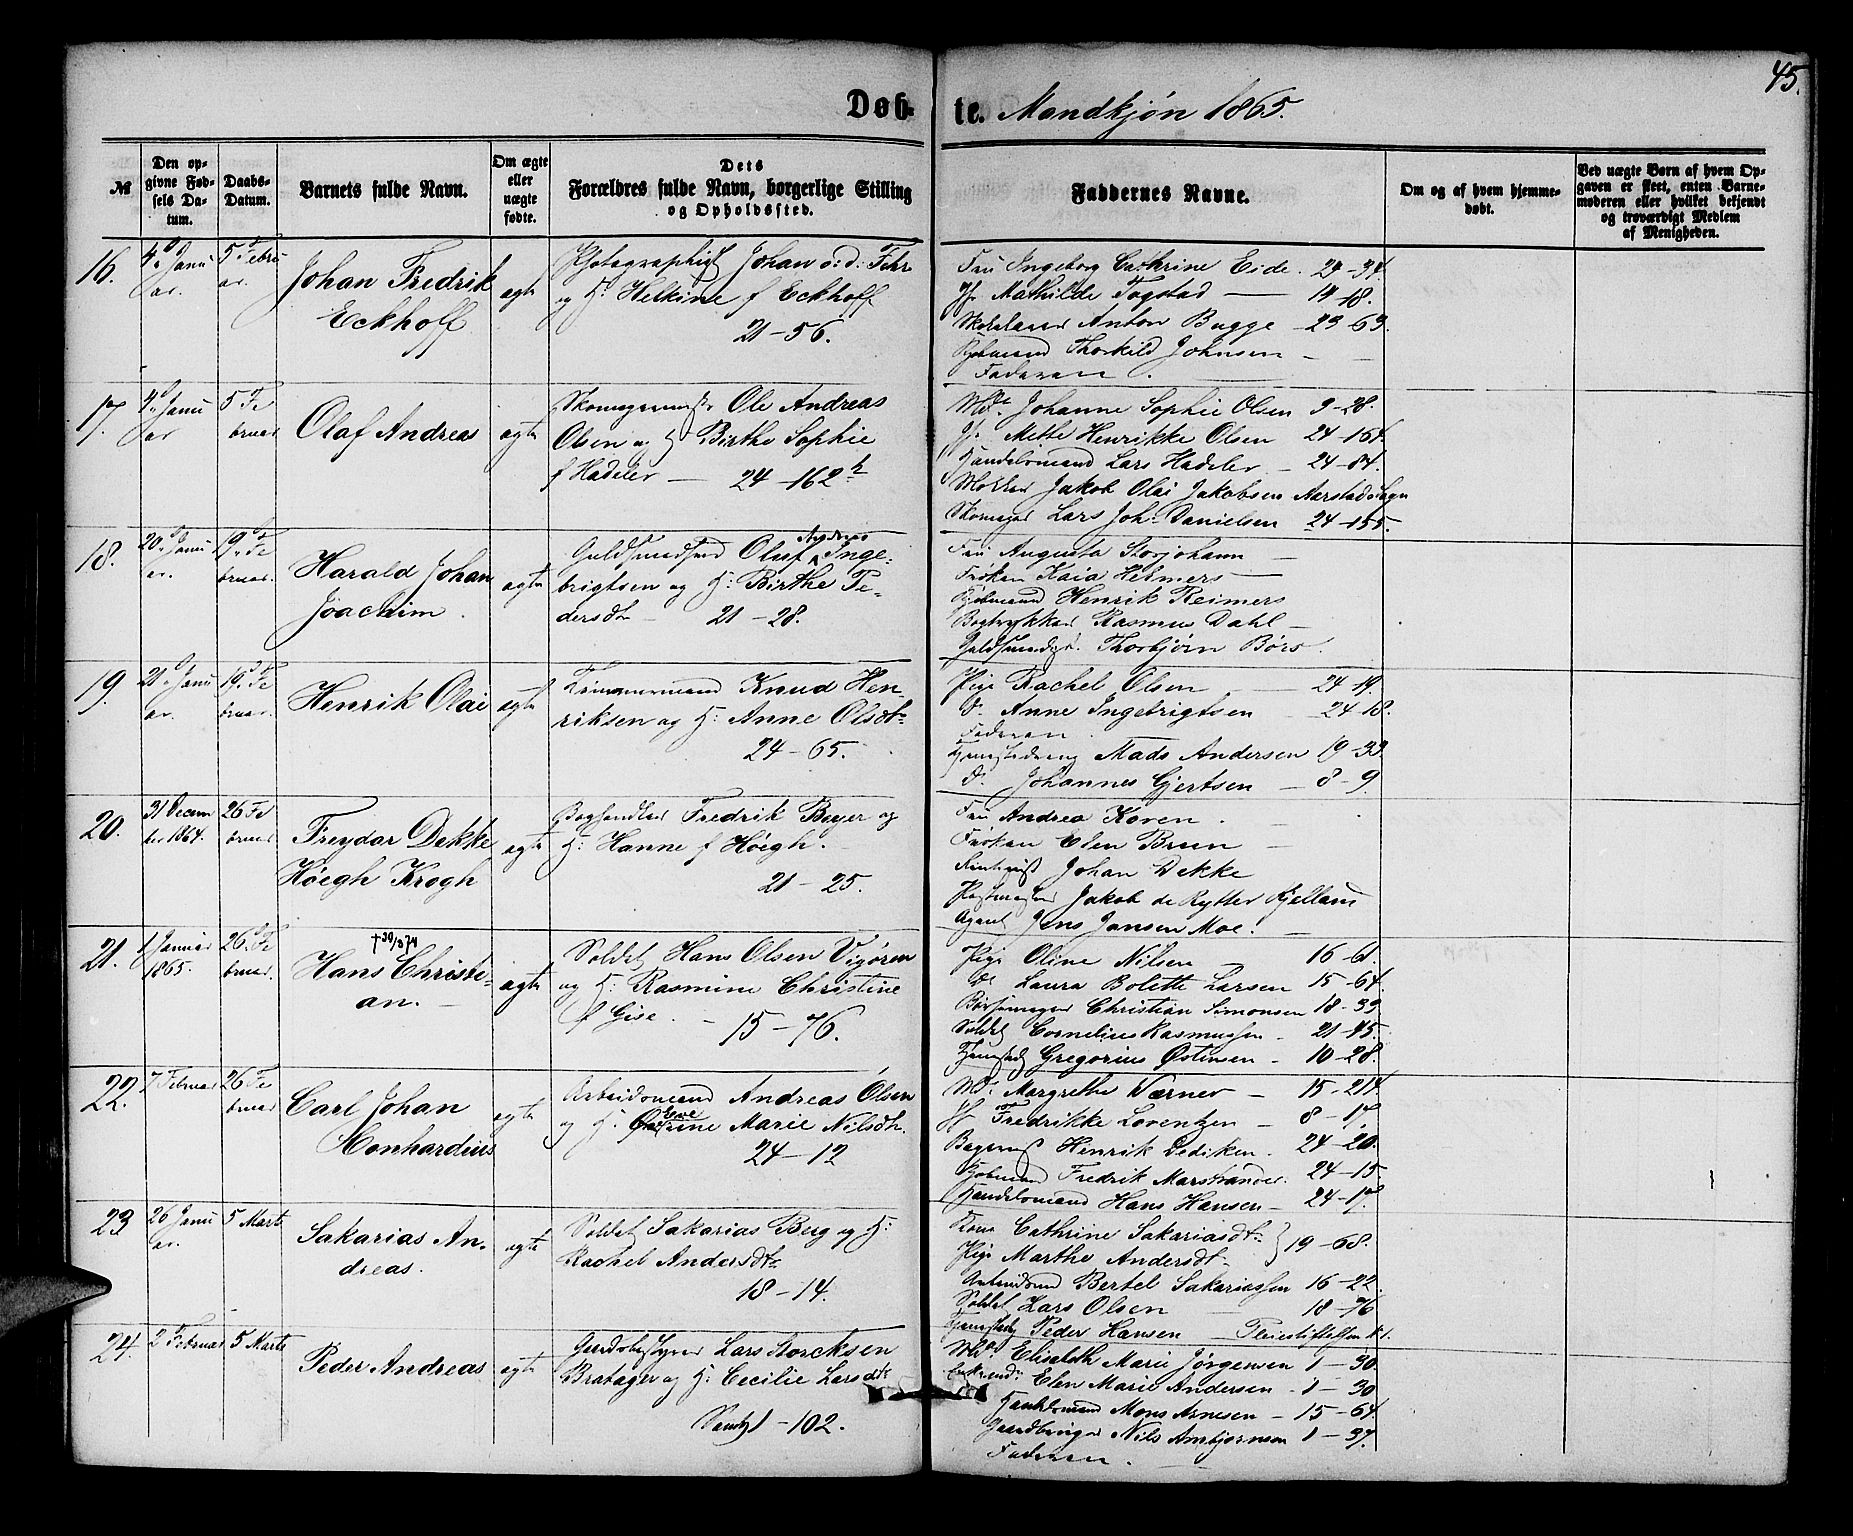 45.
Døbte. Mandkjøn 1865.
№
Den opgivne Fødsels Datum.
Daabs-Datum.
Barnets fulde Navn.
Om ægte eller uægte fødte.
Dets Forældres fulde Navn, borgerlige Stilling og Opholdssted.
Faddernes Navne.
Om og af hvem hjemmedøbt.
Ved uægte Børn af hvem Opgaven er skeet, enten Barnemoderen eller hvilket bekjendt og troværdigt Medlem af Menigheden.
16. 4de Januar. 5te Februar.
Johan Fredrik
Eckhoff
ægte
Photographist Johan
og H: Helkine f Eckhoff
21-56.
Fru Ingeborg Cathrine Eide. 24-34.
Jfr Mathilde Fogstad 14-18.
Skolelærer Anton Bugge 23-63.
Kjøbmand Thorkild Johnsen
Faderen.
17. 4de Januar 5 Februar
Olaf Andreas
ægte
Skomagermstr Ole Andreas
Olsen og H Birthe Sophie
f Hadeler 24-162 b
Md. Johanne Sophie Olsen 9-28.
Jfr Mette Henrikke Olsen 24-164.
Handelsmand Lars Hadeler 24-84.
Jakob Olai Jakobsen Aarstad Sogn
Skomager Lars Joh. Danielsen 24-155.
18. 20de Januar. 19de Februar.
Harald Johan
Joachim.
ægte
Guldsmedsvend Oluf Andreas Inge-
brigtsen og H: Birthe Pe-
dersdtr 21-28.
Fru Augusta Storjohann
Frøken Kaia Helmers
Kjøbmand Henrik Reimers
Bogtrykker Rasmus Dahl
Guldsmedsv. Thorbjørn Børs.
19. 21de Januar. 19de Februar.
Henrik Olai
ægte
Tømmermand Knud Hen-
riksen og H: Anne Olsdtr
24-65.
Pige Rachel Olsen 24-19.
do Anne Ingebrigtsen 24-18.
Faderen.
Tjenestedreng Mads Andersen 19-33
do Johannes Gjertsen 8-9.
20. 31 December 1864. 26 Februar
Freydar Dekke
Høegh Krogh
ægte
Boghandler Fredrik Beyer og
H: Hanne f Høegh.
21-25.
Fru Andrea Koren.
Frøken Elen Bruun
Johan Dekke
Postmester Jakob de Rytter Kjelland
Agent Jens Jansen Moe.
21. 1 Januar 1865. 26de Februar.
† 30/3 74
Hans Christi-
an.
ægte
Soldat Hans Olsen Vigøren
og H: Rasmine Christine
f Gise. 15-76.
Pige Oline Nilsen 16-61.
do Laura Bolette Larsen 15-64.
Børstemager Christian Simonsen 18-39
Soldat Cornelius Rasmussen 21-45.
Gregorius Østensen 10-28.
22. 7 Februar 26 Februar
Carl Johan
Monhardius
ægte
Arbeidsmand Andreas Olsen
og H: Marie Nilsdtr.
24-12
Md: Margrethe Værner 15-214.
Jfr Fredrikke Lorentzen 8-17.
Henrik Dediken. 24-20.
Kjøbmand Fredrik Marstrander. 24-15.
Handelsmand Hans Hansen 24-17.
23 26 Januar. 5 Marts
Sakarias An-
dreas.
ægte
Soldat Sakarias Berg og H:
Rachel Andersdtr
18-14.
Kone Cathrine Sakariasdtr
Pige Marthe Andersdtr } 19-68.
Arbeidsmand Bertel Sakariassen 16-22.
Soldat Lars Olsen 18-76
Peder Hansen
24. 2 Februar 5 Marts
Peder Andreas
ægte
Gaardbestyrer Lars Storcksen
Bratager og H: Cecilie Larsdtr
1-102.
Md. Elisabeth Marie Jørgensen 1-30.
Elen Marie Andersen 1-30
Handelsmand Mons Arnesen 15-64.
Gaardbruger Nils Ambjørnsen 1-37.
Faderen.